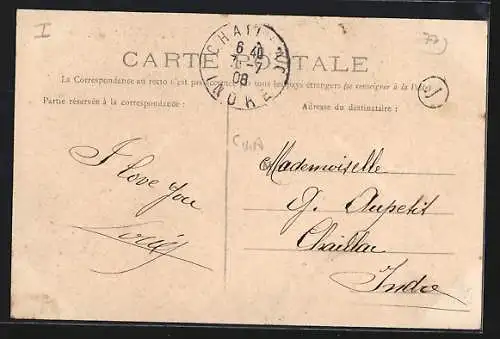 I
77)
CARTE POSTALE
La Correspondance au recto n'est pas acceptée par tous les pays étrangers (se renseigner à la Poste)
Partie réservée à la correspondance :
Adresse du destinataire :
6 40
7 - 7
08
INDRE
I love you
Mademoiselle
J. Aupetit
Chaillac
Indre